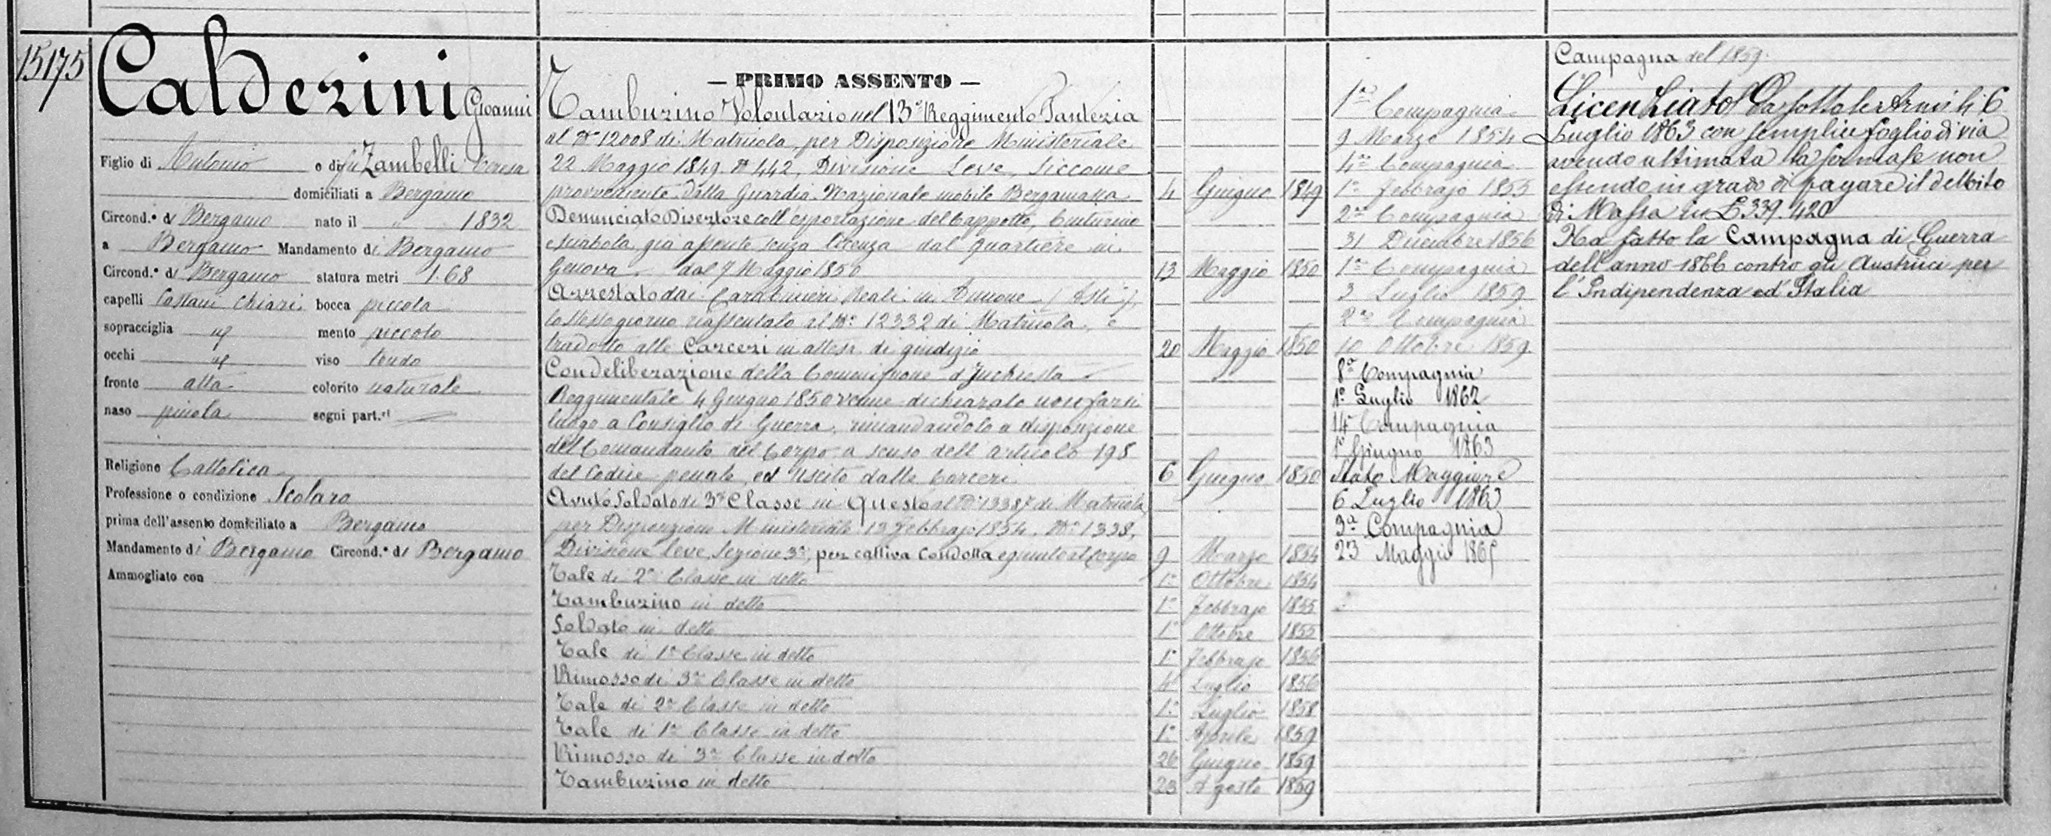 15175
Calderini Gioanni
Figlio di Antonio e di fu Zambelli Teresa
domiciliati a Bergamo
Circond.º di Bergamo nato il " 1832
a Bergamo Mandamento di Bergamo
Circond.º di Bergamo statura metri 1.68
capelli Castani chiari bocca piccola
sopracciglia id mento piccolo
occhi id viso tondo
fronte alta colorito naturale
naso piccolo segni part.ri
Religione Cattolica
Professione o condizione Scolaro
prima dell'assento domiciliato a Bergamo
Mandamento di Bergamo Circond.º di Bergamo
Ammogliato con
— PRIMO ASSENTO —
Tamburino Volontario nel 13º Reggimento Fanteria
al Nº 12008 di Matricola, per Disposizione Ministeriale
22 Maggio 1849 Nº 442, Divisione Leve, Siccome
provveniente dalla Guardia Nazionale mobile Bergamasca 4 Giugno 1849
Denunciato Disertore coll'esportazione del Cappotto, Centurino
e sciabola, già assente senza licenza dal quartiere in
Genova dal 7 Maggio 1850 13 Maggio 1850
Arrestato dai Carabinieri Reali in (Asti)
lo stesso giorno riassentato al Nº 12332 di Matricola, e
tradotto alle Carceri in attesa di giudizio 20 Maggio 1850
Con deliberazione della Commissione d'Inchiesta
Reggimentale 4 Giugno 1850 venne dichiarato non farsi
luogo a Consiglio di Guerra, rimandandolo a disposizione
del Comandante del Corpo a senso dell'articolo 198
del Codice penale, ed uscito dalle Carceri 6 Giugno 1850
Avuto Soldato di 3ª Classe in Questo al Nº 13387 di Matricola
per Disposizione Ministeriale 13 Febbrajo 1854 Nº 1338,
Divisione Leve, Sezione 3ª, per cattiva Condotta e giunto al Corpo 9 Marzo 1854
Tale di 2ª Classe in detto 1º Ottobre 1854
Tamburino in detto 1º Febbrajo 1855
Soldato in detto 1º Ottobre 1855
Tale di 1ª Classe in detto 1º Febbrajo 1856
Rimosso di 3ª Classe in detto 4 Luglio 1856
Tale di 2ª Classe in detto 1º Luglio 1858
Tale di 1ª Classe in detto 1º Aprile 1859
Rimosso di 3ª Classe in detto 26 Giugno 1859
Tamburino in detto 23 Agosto 1859
1ª Compagnia
9 Marzo 1854
4ª Compagnia
1º Febbrajo 1855
2ª Compagnia
31 Dicembre 1856
1ª Compagnia
3 Luglio 1859
2ª Compagnia
10 Ottobre 1859
8ª Compagnia
1º Luglio 1862
14ª Compagnia
1º Giugno 1863
Stato Maggiore
6 Luglio 1863
3ª Compagnia
23 Maggio 1865
Campagna del 1859.
Licenziato Da sotto le Armi li 6
Luglio 1863 con semplice foglio di via
avendo ultimata la ferma e non
essendo in grado di pagare il debito
di Massa in L. 339. 420
Ha fatto la Campagna di Guerra
dell'anno 1866 contro gli Austriaci per
l'Indipendenza d'Italia